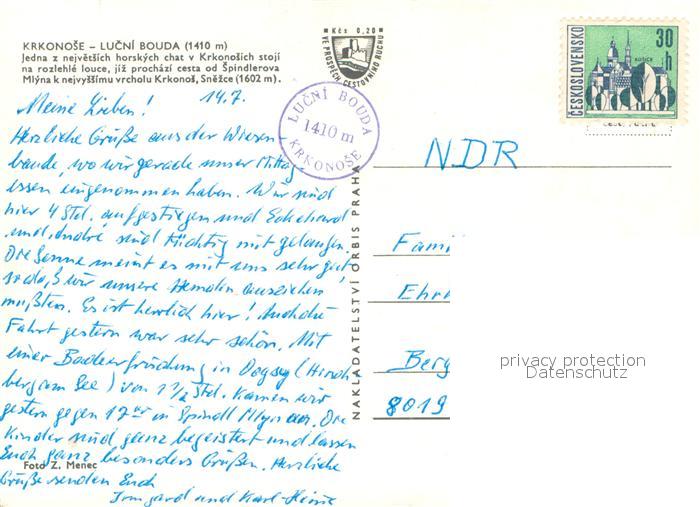 KRKONOŠE – LUČNÍ BOUDA (1410 m)
Jedna z největších horských chat v Krkonoších stojí
na rozlehlé louce, jíž prochází cesta od Špindlerova
Mlýna k nejvyššímu vrcholu Krkonoš, Sněžce (1602 m).
Kčs 0,20
VE PROSPĚCH CESTOVNÍHO RUCHU
ČESKOSLOVENSKO
30 h
KOŠICE
LUČNÍ BOUDA
1410 m
KRKONOŠE
Meine Lieben! 14.7.
Herzliche Grüße aus der Wiesen-
baude, wo wir gerade unser Mittag-
essen eingenommen haben. Wir sind
hier 4 Std. aufgestiegen und Eckehard
und André sind tüchtig mit gelaufen.
Die Sonne meint es mit uns sehr gut,
sodaß wir unsere Hemden ausziehen
mußten. Es ist herrlich hier! Auch die
Fahrt gestern war sehr schön. Mit
einer Badeerfrischung in Doksy (Hirsch-
berg am See) von 1 1/2 Std. kamen wir
gestern gegen 17 Uhr in Spindl Mlyn an. Die
Kinder sind ganz begeistert und lassen
Euch ganz besonders Grüßen. Herzliche
Grüße senden Euch
Irmgard und Karl-Heinz
Foto Z. Menec
NAKLADATELSTVÍ ORBIS PRAHA
NDR
Fami
Ehr
Berg
8019
privacy protection
Datenschutz